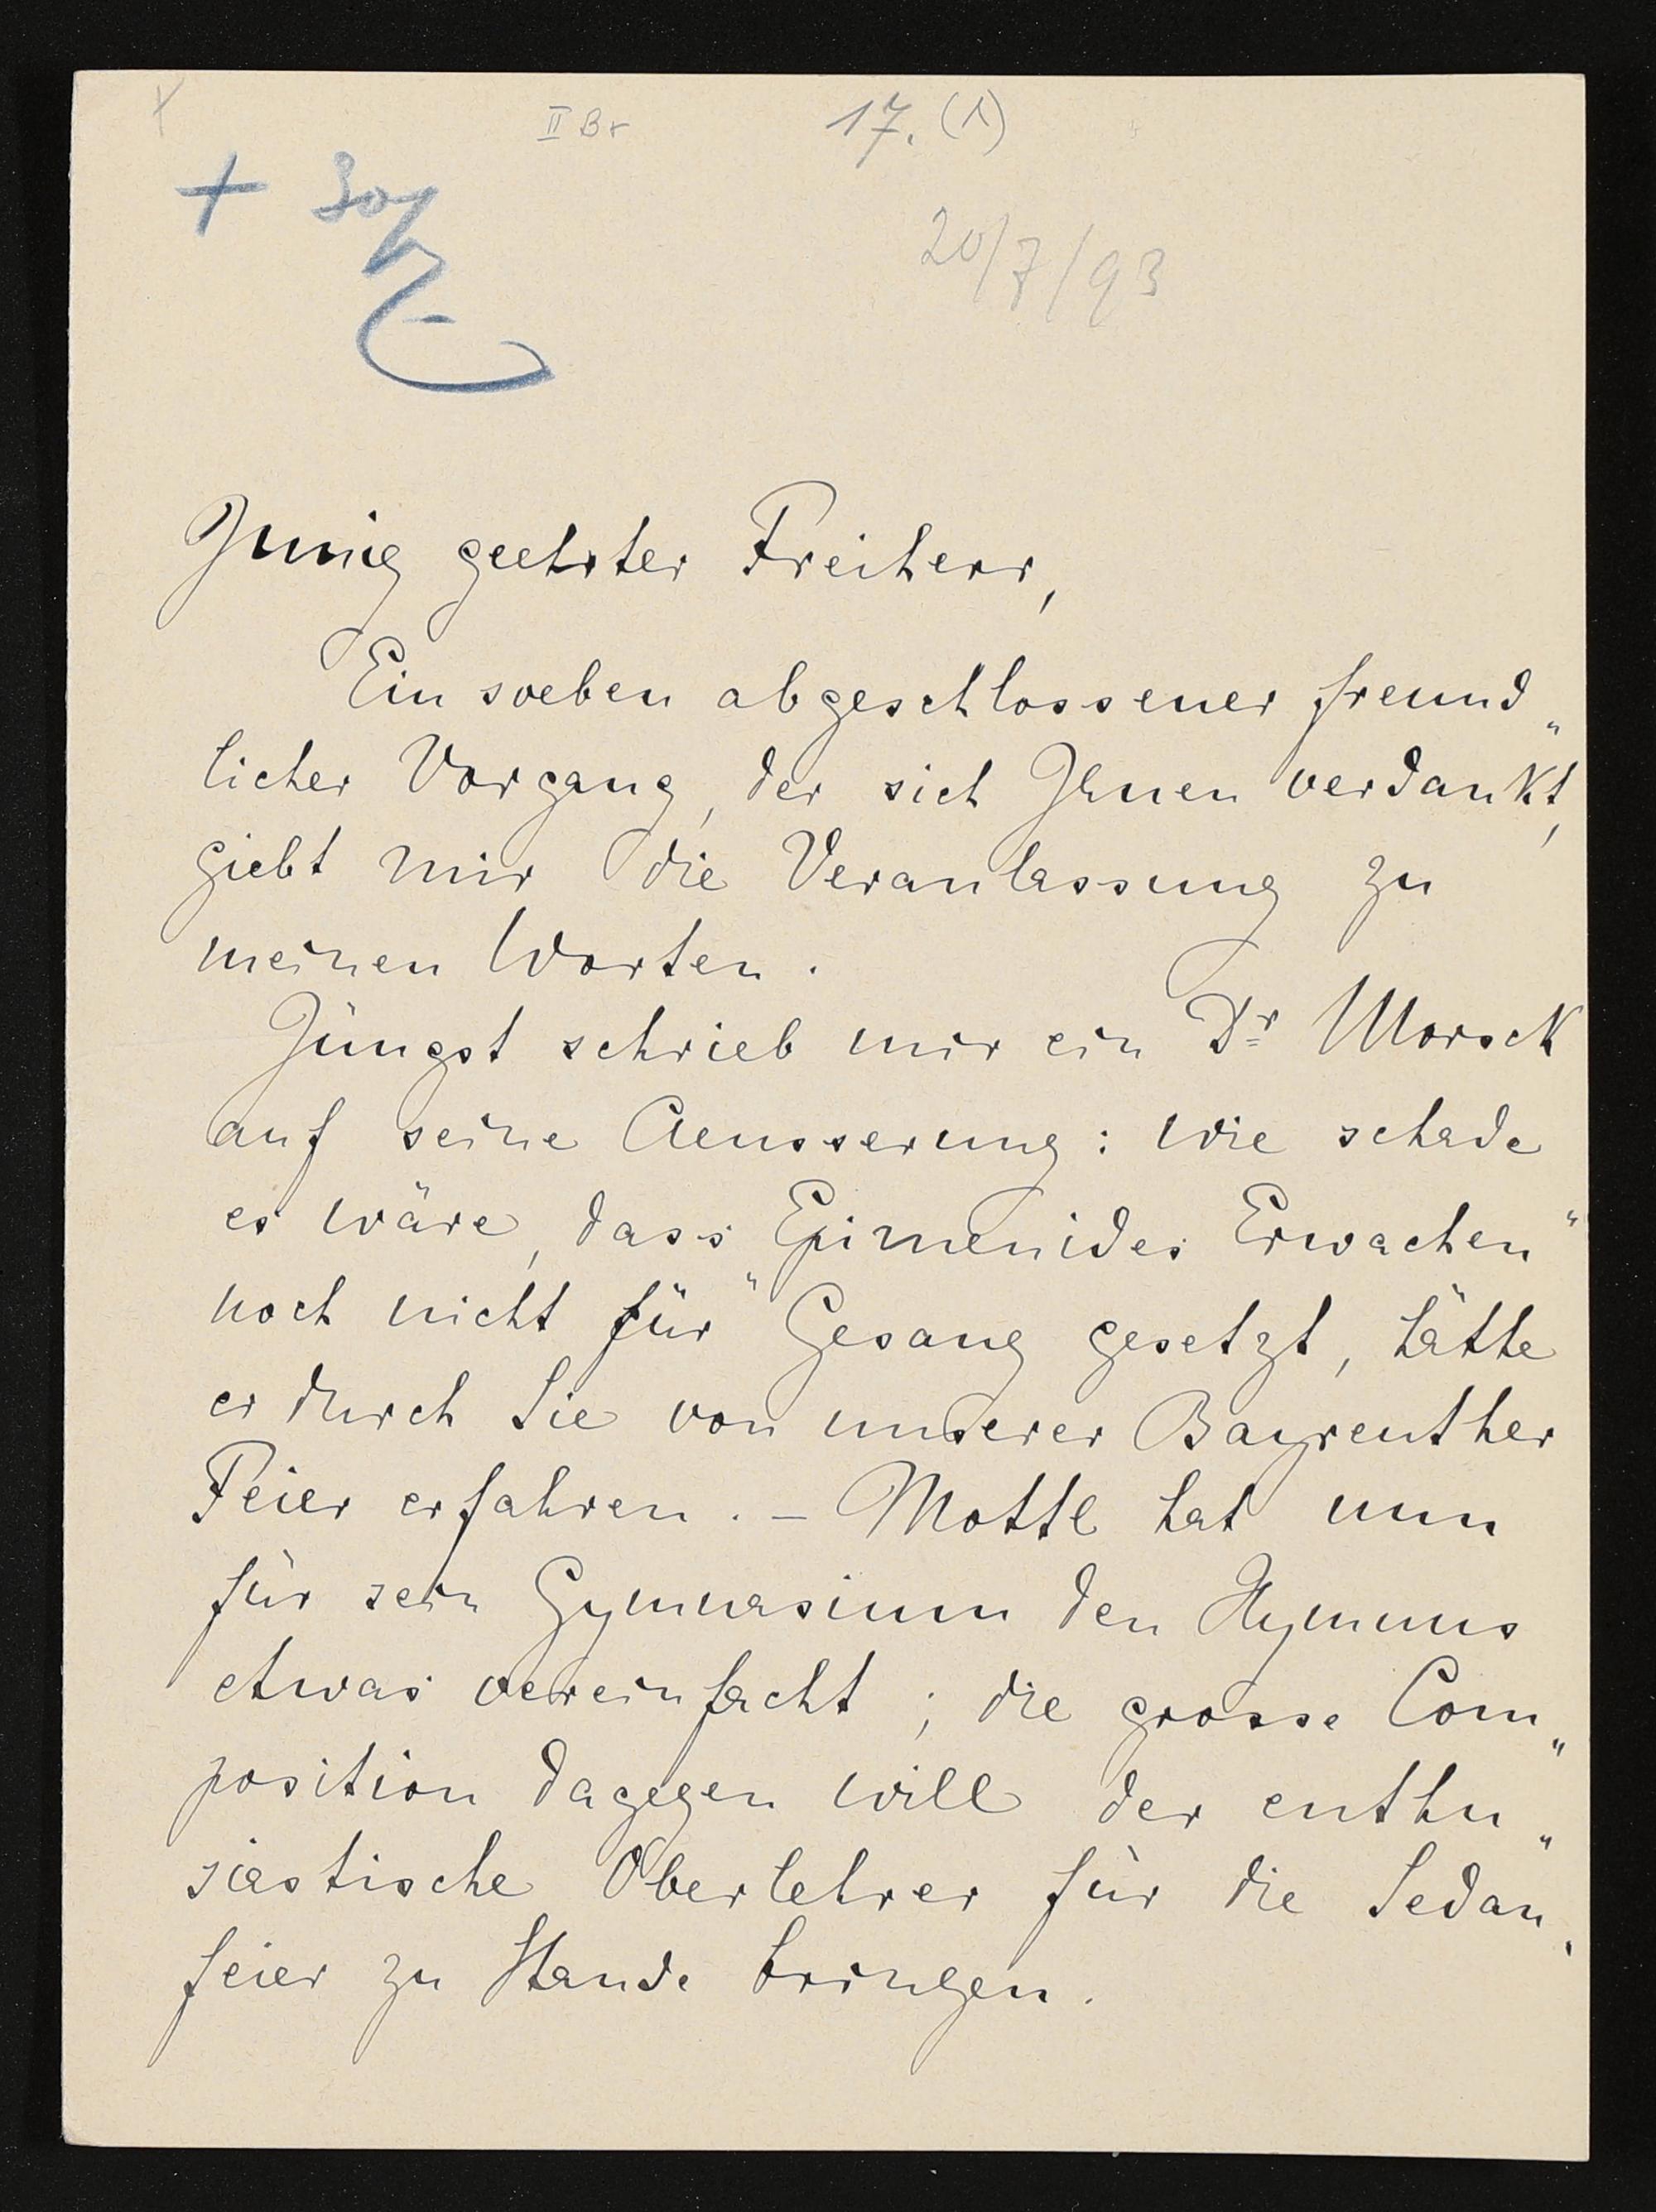 II Br 17. (1)
20/7/93
Innig geehrter Freiherr,
Ein soeben abgeschlossener freund„
licher Vorgang, der sich Ihnen verdankt,
giebt mir die Veranlassung zu
meinen Worten.
Jüngst schrieb mir ein Dr Morsch
auf seine Aeusserung: wie schade
es wäre, dass „Epimenides Erwachen“
noch nicht für Gesang gesetzt, hätte
er durch Sie von unserer Bayreuther
Feier erfahren. – Mottl hat nun
für sein Gymnasium den Hymnus
etwas vereinfacht; die grosse Com„
position dagegen will der enthu„
siastische Oberlehrer für die Sedan„
feier zu Stande bringen.